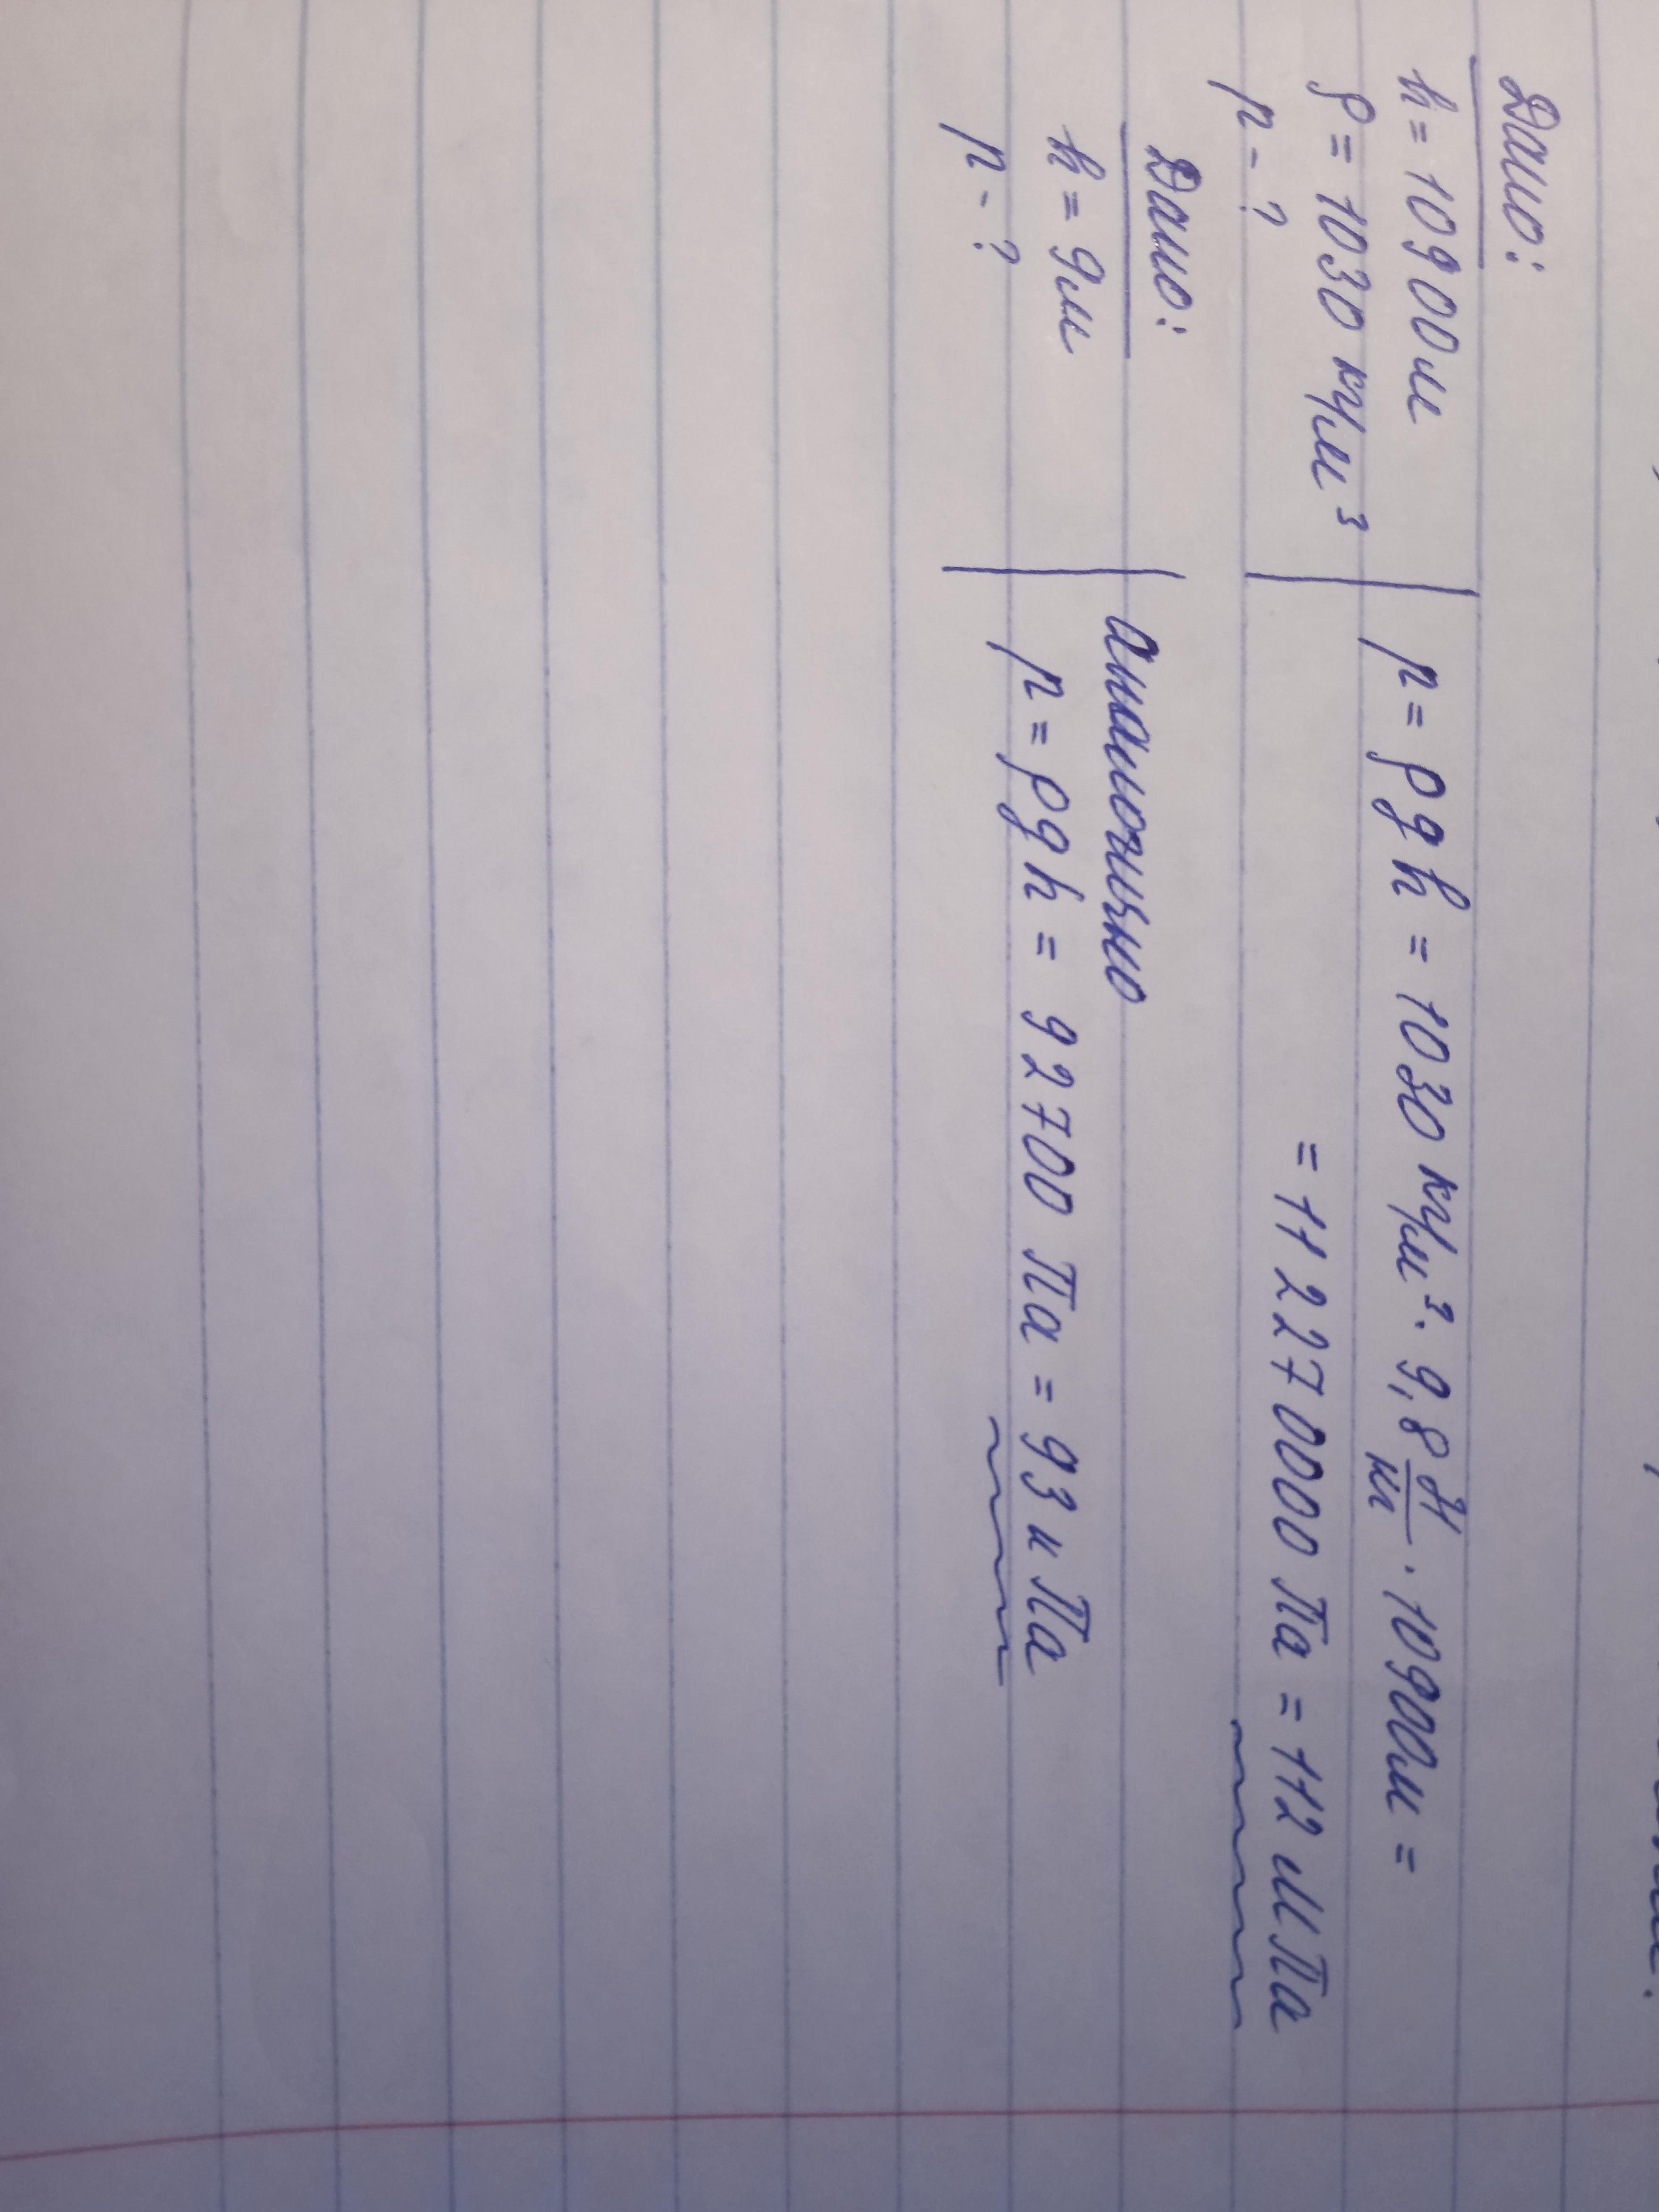 Дано:
h = 10900м
ρ = 1030 кг/м³
p - ?
p = ρgh = 1030 кг/м³ · 9,8 Н/кг · 10900м =
= 112270000 Па = 112 МПа
Дано:
h = 9м
p - ?
аналогично
p = ρgh = 92700 Па = 93 кПа